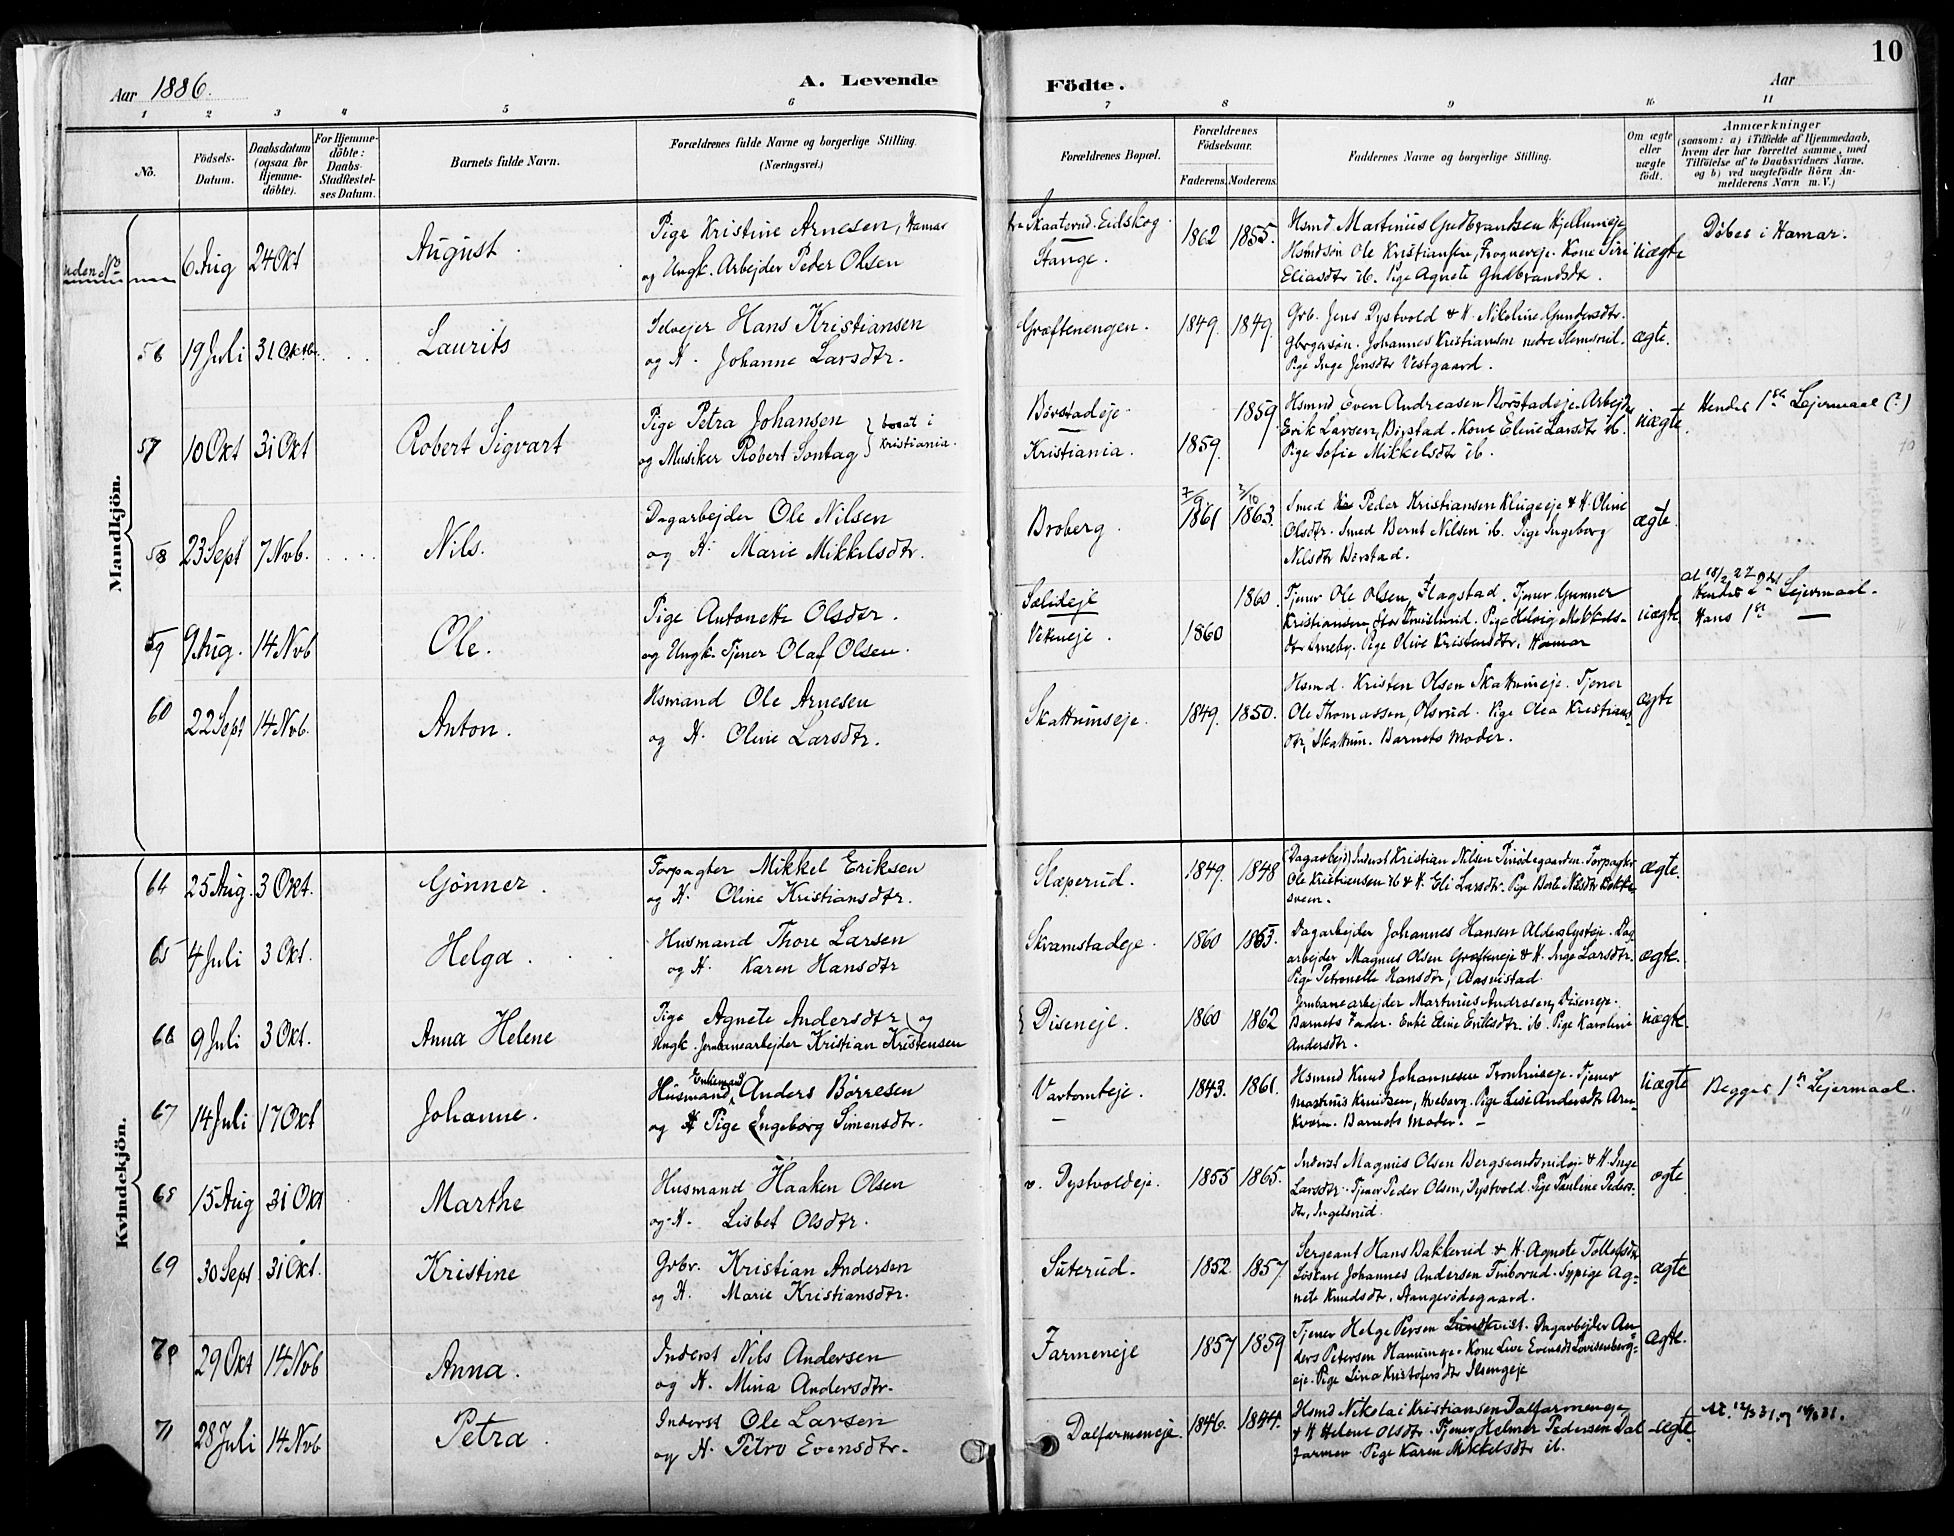 10
Aar 1886. A. Levende Födte. Aar
1 2 3 4 5 6 7 8 9 10 11
No.
Födsels-
Datum.
Daabsdatum
(ogsaa for
Hjemme-
döbte).
For Hjemme-
döbte:
Daabs-
Stadfæstel-
ses Datum.
Barnets fulde Navn.
Forældrenes fulde Navne og borgerlige Stilling.
(Næringsvei.)
Forældrenes Bopæl.
Forældrenes
Födselsaar.
Faderens. Moderens.
Faddernes Navne og borgerlige Stilling.
Om ægte
eller
uægte
födt.
Anmærkninger
(saasom: a) i Tilfælde af Hjemmedaab,
hvem der har forrettet samme, med
Tilföielse af to Daabsvidners Navne,
og b) ved uægtefödte Börn An-
melderens Navn m. V.)
Mandkjön.
uden No 6 Aug 24 Okt August
Pige Kristine Arnesen, Hamar
og Ungk. Arbejder Peder Olsen
Skaaterud. Eidskog
Stange.
1862 1855.
Hsmd Martinius Gudbrandsen Hjellumeje
Hsmdsön Ole Kristiansen, Frognereje. Kone Siri
Eliasdtr ib. Pige Agnete Gudbrandsdtr.
uægte
Döbes i Hamar.
56 19 Juli 31 Oktb. Laurits
Selvejer Hans Kristiansen
og H. Johanne Larsdtr.
Græftenengen. 1849. 1849.
Grb. Jens Dystvold & H. Nikoline Gundersdtr.
Gbrgersön. Johannes Kristiansen nedre Slemsrud.
Pige Inge Jensdtr Vestgaard.
ægte.
57 10 Okt 31 Okt Robert Sigvart
Pige Petra Johansen
og Musiker Robert Sontag } bosat i Kristiania.
Börstadeje
Kristiania.
1859. 1859.
Hsmd Even Andreasen Börstadeje. Arbejder
Erik Larsen, Börstad. Kone Eline Larsdtr ib.
Pige Sofie Mikkelsdtr ib.
uægte.
Hendes 1ste Lejermaal (?)
58 23 Sept 7 Nvb. Nils.
Dagarbejder Ole Nilsen
og H. Marie Mikkelsdtr.
Broberg. 7/9 1861 3/10 1863.
Smed Peder Kristiansen Klugeeje & H. Oline
Olsdtr. Smed Bernt Nilsen ib. Pige Ingeborg
Nilsdtr Börstad.
ægte.
59 9 Aug. 14 Nvb Ole.
Pige Antonette Olsdtr.
og Ungk. Tjener Olaf Olsen.
Sælideje
Vikeneje.
1860 1860.
Tjener Ole Olsen, Flagstad. Tjener Gunner
Kristiansen, Pige Helvig Mikkels-
dtr Arneby. Pige Olive Kristensdtr, Hamar
uægte
at 18/2 27
Hendes 2det Lejermaal.
Hans 1ste —
60 22 Sept 14 Nvb. Anton.
Hsmand Ole Arnesen
og H. Oline Larsdtr.
Skattumseje. 1849. 1850.
Hsmd. Kristen Olsen Skattumeje. Tjener
Ole Thomassen, Olsrud. Pige Olea Kristians-
dtr, Skattum. Barnets Moder.
ægte
Kvindekjön.
64 25 Aug. 3 Okt. Gönner.
Forpagter Mikkel Eriksen
og H. Oline Kristiansdtr.
Slæperud. 1849. 1848
(Dagarbejd) Inderst Kristian Nilsen Forpagter
Ole Kristiansen ib & H. Eli Larsdtr. Pige Berte Nilsdtr
svern.
ægte.
65 4 Juli 3 Okt. Helga.
Husmand Thore Larsen
og H. Karen Hansdtr
Skramstadeje. 1860 1853.
Dagarbejder Johannes Hansen Alderslysteje. Dag-
arbejder Magnus Olsen Græfteneje & H. Inge Larsdtr.
Pige Petronelle Hansdtr, Aasmestad.
ægte.
66 9 Juli 3 Okt. Anna Helene
Pige Agnete Andersdtr og
Ungk. Jernbanearbejder Kristian Kristensen
Diseneje. 1860 1862
Jernbanearbejder Martinius Andresen, Diseneje.
Barnets Fader. Enke Eline Eriksdtr ib. Pige Karoline
Andersdtr.
uægte.
67 14 Juli 17 Okt Johanne.
Husmand, Enkemand Anders Börresen
og H Pige Ingeborg Simensdtr.
Vartomteje.
—
1843. 1861.
Hsmd Knud Johannesen Tronhuseje. Tjener
Martinus Knudsen, Hveberg. Pige Lise Andersdtr Arn-
kværn. Barnets Moder. —
uægte
Begges 1ste Lejermaal.
68 15 Aug 31 Okt Marthe
Husmand Haaken Olsen
og H. Lisbet Olsdtr.
v. Dystvoldeje. 1855 1865.
Inderst Magnus Olsen & H. Inge
Larsdtr. Tjener Peder Olsen, Dystvold. Pige Pauline Peders-
dtr, Ingelsrud.
ægte
69 30 Sept 31 Okt. Kristine
Grbr. Kristian Andersen
og H. Marie Kristiansdtr.
Suterud. 1852. 1857
Sergeant Hans Bakkerud & H. Agnete Tollefsdtr
Löskarl Johannes Andersen Finborud. Sypige Ag-
nete Knudsdtr, Stangerödegaard.
ægte
70 29 Okt 14 Nvb Anna.
Inderst Nils Andersen
og H. Mina Andersdtr.
Farmeneje 1857 1859
Tjener Helge Persen Lundkvist. Dagarbejder An-
ders Petersen Hanumeje. Kone Live Evensdt Lovisenberg-
eje. Pige Lina Kristofersdtr Ilsengeje
ægte.
71 28 Juli 14 Nvb Petra
Inderst Ole Larsen
og H. Petro Evensdtr.
Dalfarmeneje. 1846. 1844.
Hsmd Nikolai Kristiansen Dalfarmeneje
& H Helene Olsdtr. Tjener Helmer Pedersen Dal
farmen. Pige Karen Mikkelsdtr ib.
ægte.